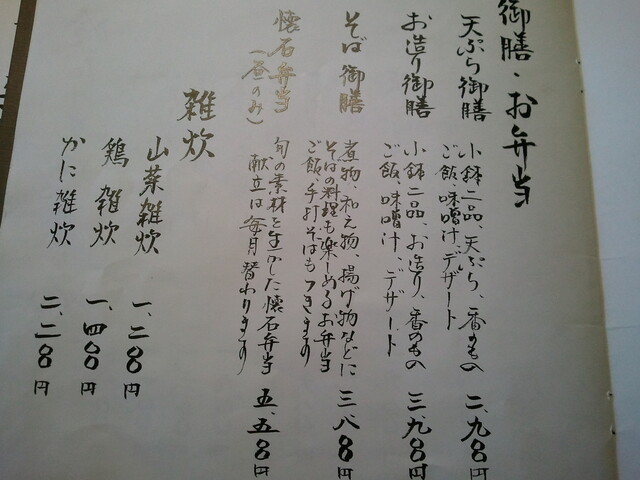 御膳・お弁当
天ぷら御膳
小鉢二品、天ぷら、香のもの
ご飯、味噌汁、デザート
二、九〇〇円
お造り御膳
小鉢二品、お造り、香のもの
ご飯、味噌汁、デザート
三、九〇〇円
そば御膳
煮物、和え物、揚げ物などに
そばの料理も楽しめるお弁当
ご飯、手打そばもつきます
三、八〇〇円
懐石弁当
(昼のみ)
旬の素材を生かした懐石弁当
献立は毎月替わります
五、五〇〇円
雑炊
山菜雑炊 一、二〇〇円
鶏雑炊 一、四〇〇円
かに雑炊 二、二〇〇円